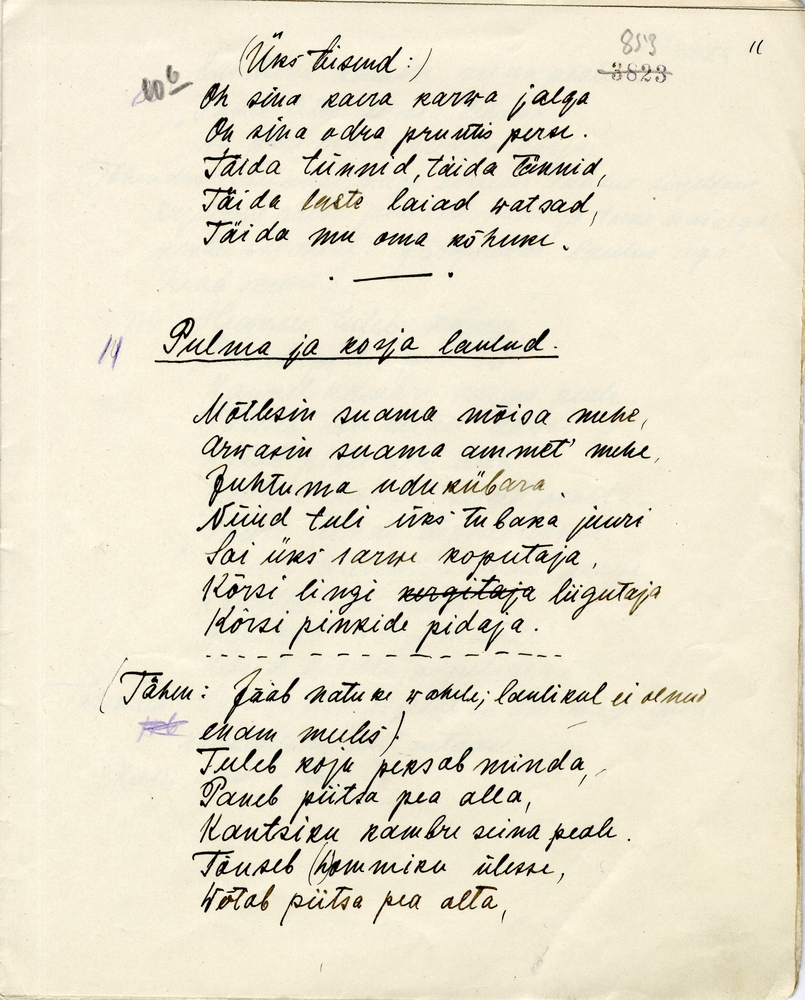 11
853
3823
(Üks teisend:)
10 b
Oh sina kaera karwa jalga
Oh sina odra pruntis perse.
Täida tünnid, täida tünnid,
Täida laste laiad watsad,
Täida mu oma kõhuke.
11 Pulma ja kosja laulud.
Mõtlesin saama mõisa mehe,
Arwasin saama ammet' mehe,
Juhtuma udukübara.
Nüüd tuli üks tubaka juuri
Sai üks sarwe koputaja,
Kõrsi lingi kergitaja liigutaja
Kõrsi pinkide pidaja.
(Tähen: Jääb natuke wahele; laulikul ei olnud
enam meeles).
Tuleb koju peksab minda,
Paneb piitsa pea alla,
Kantsiku kambre seina peale.
Tõuseb (h)ommiku ülesse,
Wõtab piitsa pea alta,